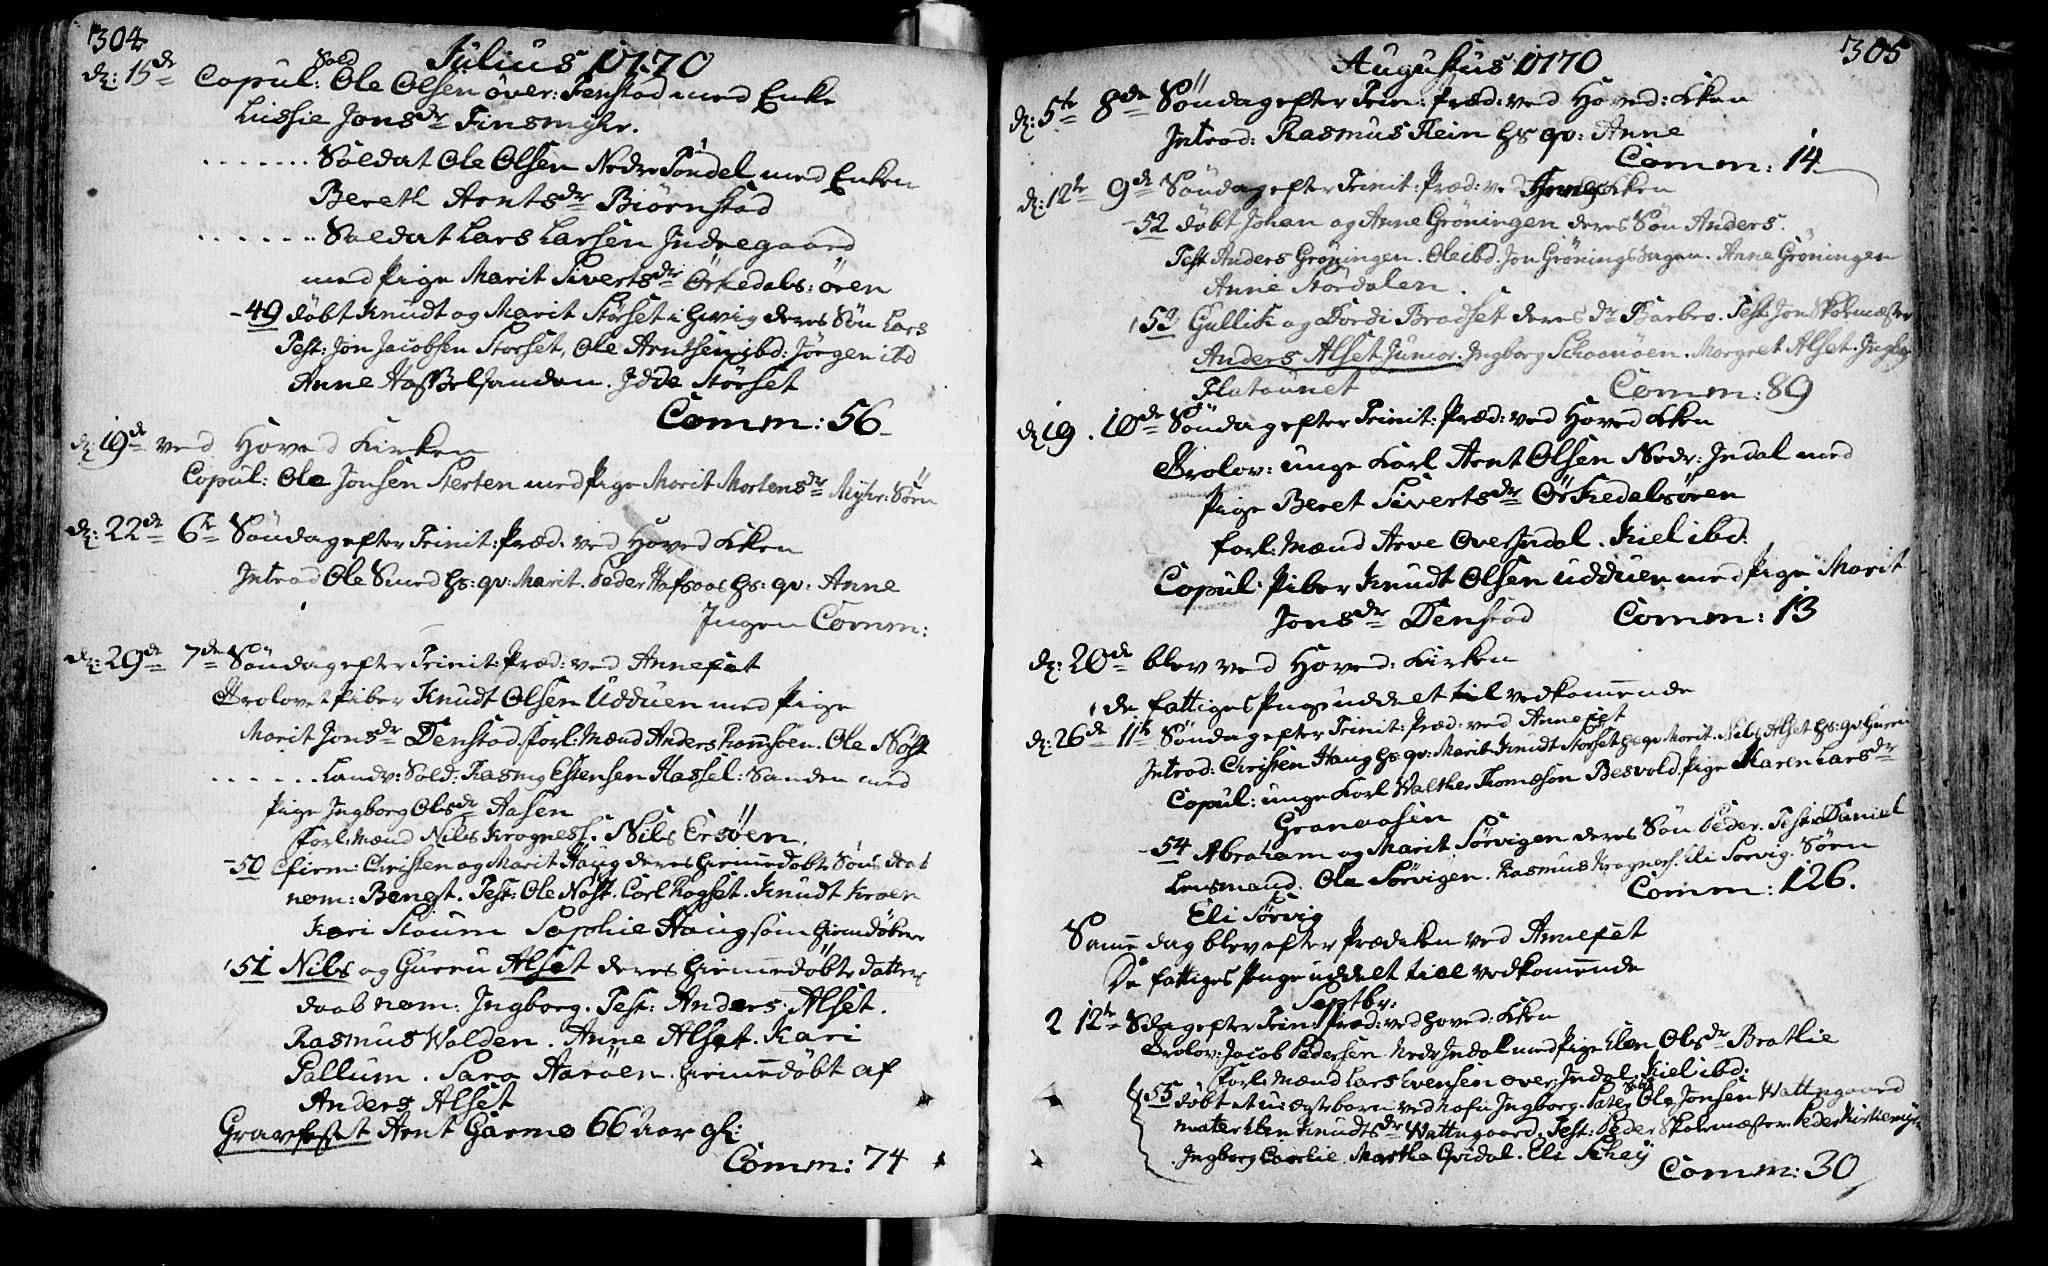 304
Julius 1770
d: 15de Copul: Sold Ole Olsen över: Fenstad med Enke
Lussie Jonsdr Finsmyhr.
....... Soldat Ole Olsen Nedre Töndel med Enken
Bereth Arntsdr Biörnstad
....... Soldat Lars Larsen Indregaard
med Pige Marit Sivertsdr Örkedals: ören
- 49 döbt Knudt og Marit Störset i Gvig deres Sön Lars
Test: Jon Jacobsen Störset, Ole Arntsen ibd: Jörgen ibd
Anne Hasselsanden. Idde Störset
Comm: 56
d: 19de ved Hoved Kirken
Copul: Ole Jonsen Sterten med Pige Marit Mortensdr Myhr: Sörn
d: 22de 6te Söndag efter Trinit: Præd: ved Hoved Kken
Introd Ole Smed hs: qv: Marit. Peder Hafsaas hs: qv: Anne
Ingen Comm:
d: 29de 7de Söndag efter Trinit: Præd: ved Annexet
Trolov: Piber Knudt Olsen Udduen med Pige
Marit Jonsdr Denstad. forl: Mænd Anders Ramsöen. Ole Nöst
...... Landv: Sold: Rasmus Estensen Hassel: Sanden med
Pige Ingborg Olsdr Aasen
forl: Mænd Nils Kragness. Nils Ersöen.
- 50 Cfirm: Christen og Marit Haug deres hiemmedöbte Söns daab
nom: Bengt. Test: Ole Nöst. Carl Rogset. Knudt Kroen
Kari Stoum Sophie Haug som hiemdöbte
51 Nils og Gurru Alset deres hiemmedöbte datters
daab nom: Ingborg. Test: Anders Alset.
Rasmus Wolden. Anne Alset. Kari
Pallum. Sara Aaröen. hiemmedöbt af
Anders Alset
Gravfestet Arnt Garmo 66 aar gl:
Comm: 74
305
Augustus 1770
d: 5te 8de Söndag efter Trin: Præd: ved Hoved: Kken
Introd: Rasmus Rein hs qv: Anne
Comm: 14
d: 12te 9de Söndag efter Trinit: Præd: ved Kken
- 52 döbt Johan og Anne Gröningen deres Sön Anders.
Test Anders Gröningen. Ole ibd. Jon Grönings hagen. Anne Gröningen
Anne Stördalen.
53 Gullik og Dordi Bradset deres Dr Barbro. Test: Jon Skolemæster
Anders Alset Junior. Ingborg Schaanöen. Margret Alset. Ingborg
Flatounet
Comm: 89
d 19. 10de Söndag efter Trinit: Præd: ved Hoved Kken
Trolov: unge Karl Arnt Olsen Nedr: Indal med
Pige Beret Sivertsdr Örkedalsören
forl: Mænd Arve Over Indal. Kiel ibd:
Copul: Piber Knudt Olsen Udduen med Pige Marit
Jonsdr Denstad Comm: 13
d: 20de blev ved Hoved: Kirken
de fattiges Penge uddelt til vedkommende
d: 26de 11te Söndag efter Trinit: Præd: ved Annexet
Introd: Christen Haug hs: qv: Marit. Knudt Störset hs qv Marit. Nils Alset hs: qv: Gurru
Copul: unge Karl Walther Thomesön Besvold. Pige Maren Larsdr
Granaasen
- 54 Abraham og Marit Sörvigen deres Sön Peder. Test: Daniel
Lensmand. Ole Sörvigen. Rasmus Kragness. Eli Sörvig. Sörn
Eli Sörvig
Comm: 126.
Samme dag blev efter Prædiken ved Annexet
De fattiges Penge uddelt till vedkommende
Septbr:
2 12te Sdag efter Trin: Præd: ved Hoved: Kken
Trolov: Jacob Pedersen Nedr Indal med Pige Elen Olsdr Bratlie
forl: Mænd Lars Evensen over Indal. Kiel ibd:
55 döbt et u: ægte barn ved nafn Ingborg. Pater Sold Ole Jonsen Wattngaard
mater Elen Knudtsdr Wattngaard. Test: Peder Skolemæster. Peder Kirkemyhr
Ingborg. Martha Qvidal. Eli Schey
Comm: 30